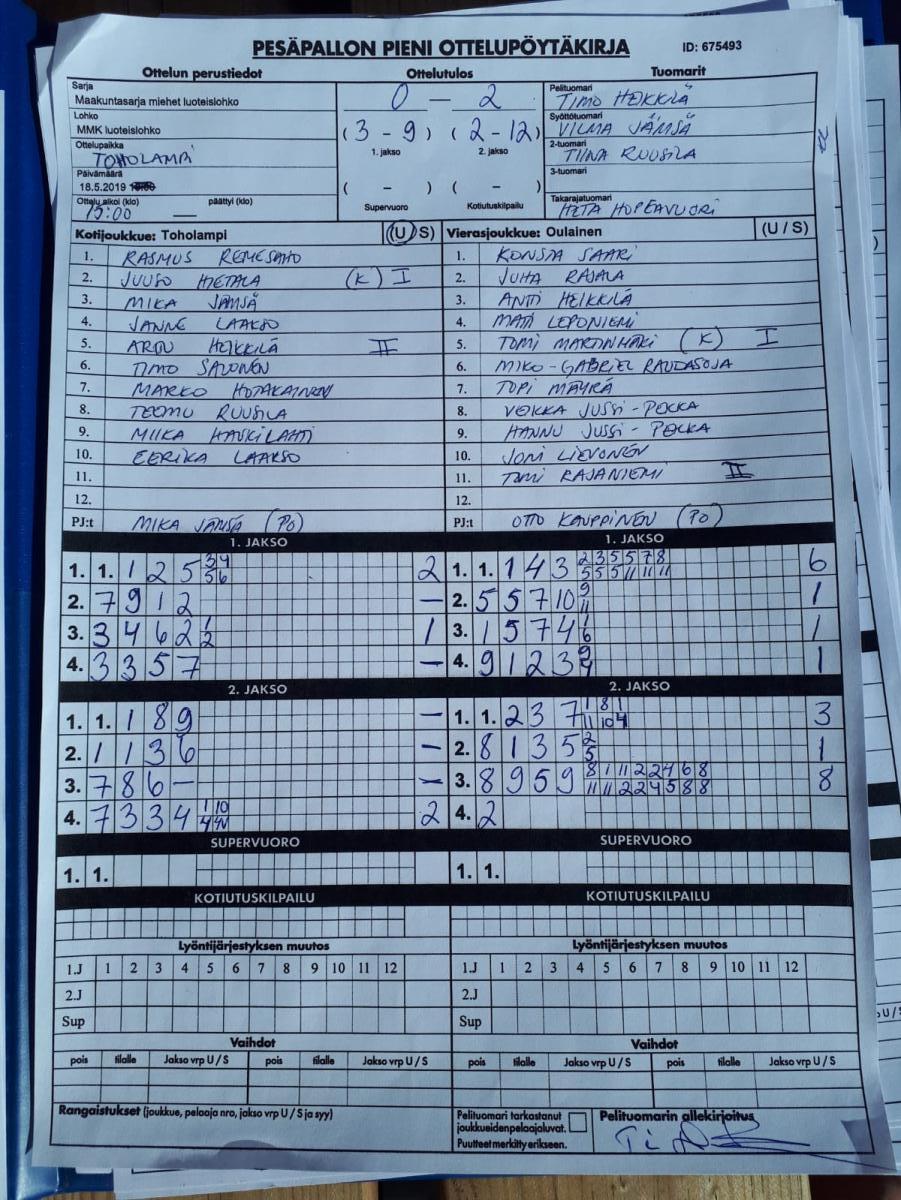 PESÄPALLON PIENI OTTELUPÖYTÄKIRJA ID: 675493
Ottelun perustiedot Ottelutulos Tuomarit
Sarja
Maakuntasarja miehet luoteislohko
Lohko
MMK luoteislohko
Ottelupaikka
TOHOLAMPI
Päivämäärä
18.5.2019
Ottelu alkoi (klo) päättyi (klo)
15:00 —
0 — 2
(3 - 9) (2 - 12)
1. jakso 2. jakso
( - ) ( - )
Supervuoro Kotiutuskilpailu
Pelituomari
TIMO HEIKKILÄ
Syöttötuomari
VILMA JÄMSÄ
2-tuomari
TIINA RUUSILA
3-tuomari
Takarajatuomari
HETA HOPEAVUORI
Kotijoukkue: Toholampi (U/S) Vierasjoukkue: Oulainen (U / S)
1. RASMUS REMESAHO 1. KONSTA SAARI
2. JUUSO HIETALA (K) I 2. JUHA RAJALA
3. MIKA JÄMSÄ 3. ANTTI HEIKKILÄ
4. JANNE LAAKSO 4. MATTI LEPONIEMI
5. ARTTU HEIKKILÄ II 5. TOMI MARTINMÄKI (K) I
6. TIMO SALONEN 6. MIKO-GABRIEL RAUDASOJA
7. MARKO HOTAKAINEN 7. TOPI MÄYRÄ
8. TEEMU RUUSILA 8. VEIKKA JUSSI-PEKKA
9. MIIKA HAUKILAHTI 9. HANNU JUSSI-PEKKA
10. EERIKA LAAKSO 10. JONI LIEVONEN
11. 11. TOMI RAJANIEMI II
12. 12.
PJ:t MIKA JÄMSÄ (PO) PJ:t OTTO KAUPPINEN (PO)
1. JAKSO 1. JAKSO
1. 1. 1 2 5 3 4 2 1. 1. 1 4 3 2 3 5 5 7 8 6
5 6 5 5 5 11 11 11
2. 7 9 1 2 — 2. 5 5 7 10 9 1
11
3. 3 4 6 2 1 1 3. 1 5 7 4 1 1
2 6
4. 3 3 5 7 — 4. 9 1 2 3 9 1
4
2. JAKSO 2. JAKSO
1. 1. 1 8 9 — 1. 1. 2 3 7 1 8 1 3
11 10 4
2. 1 1 3 6 — 2. 8 1 3 5 2 1
5
3. 7 8 6 — — 3. 8 9 5 9 8 1 11 2 2 4 6 8 8
11 11 2 2 4 5 8 8
4. 7 3 3 4 1 10 2 4. 2
SUPERVUORO SUPERVUORO
1. 1. 1. 1.
KOTIUTUSKILPAILU KOTIUTUSKILPAILU
Lyöntijärjestyksen muutos Lyöntijärjestyksen muutos
1.J 1 2 3 4 5 6 7 8 9 10 11 12 1.J 1 2 3 4 5 6 7 8 9 10 11 12
2.J 2.J
Sup Sup
Vaihdot Vaihdot
pois tilalle Jakso vrp U / S pois tilalle Jakso vrp U / S pois tilalle Jakso vrp U / S pois tilalle Jakso vrp U / S
Rangaistukset (joukkue, pelaaja nro, jakso vrp U / S ja syy)
Pelituomari tarkastanut
joukkueidenpelaajaluvat.
Puutteet merkitty erikseen.
Pelituomarin allekirjoitus